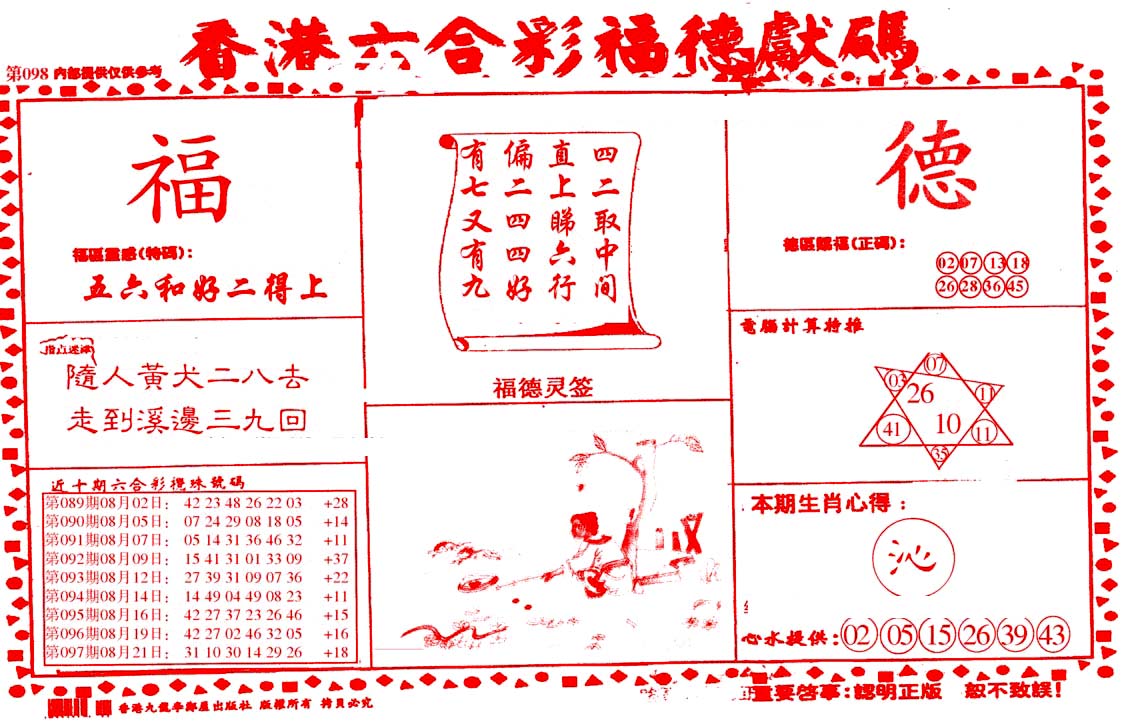 香港六合彩福德獻碼
第098 内部提供仅供参考
福
福區靈感(特碼):
五六和好二得上
指点迷津
隨人黃犬二八去
走到溪邊三九回
近十期六合彩攪珠號碼
第089期08月02日: 42 23 48 26 22 03 +28
第090期08月05日: 07 24 29 08 18 05 +14
第091期08月07日: 05 14 31 36 46 32 +11
第092期08月09日: 15 41 31 01 33 09 +37
第093期08月12日: 27 39 31 09 07 36 +22
第094期08月14日: 14 49 04 49 08 23 +11
第095期08月16日: 42 27 37 23 26 46 +15
第096期08月19日: 42 27 02 46 32 05 +16
第097期08月21日: 31 10 30 14 29 26 +18
四二取中间
直上睇六行
偏二四四好
有七又有九
福德灵签
德
德區賜福(正碼):
02 07 13 18
26 28 36 45
電腦計算特推
07
03 26 11
41 10 11
35
本期生肖心得:
沁
心水提供: 02 05 15 26 39 43
重要啓事:認明正版 恕不致誤!
版權所有 拷貝必究